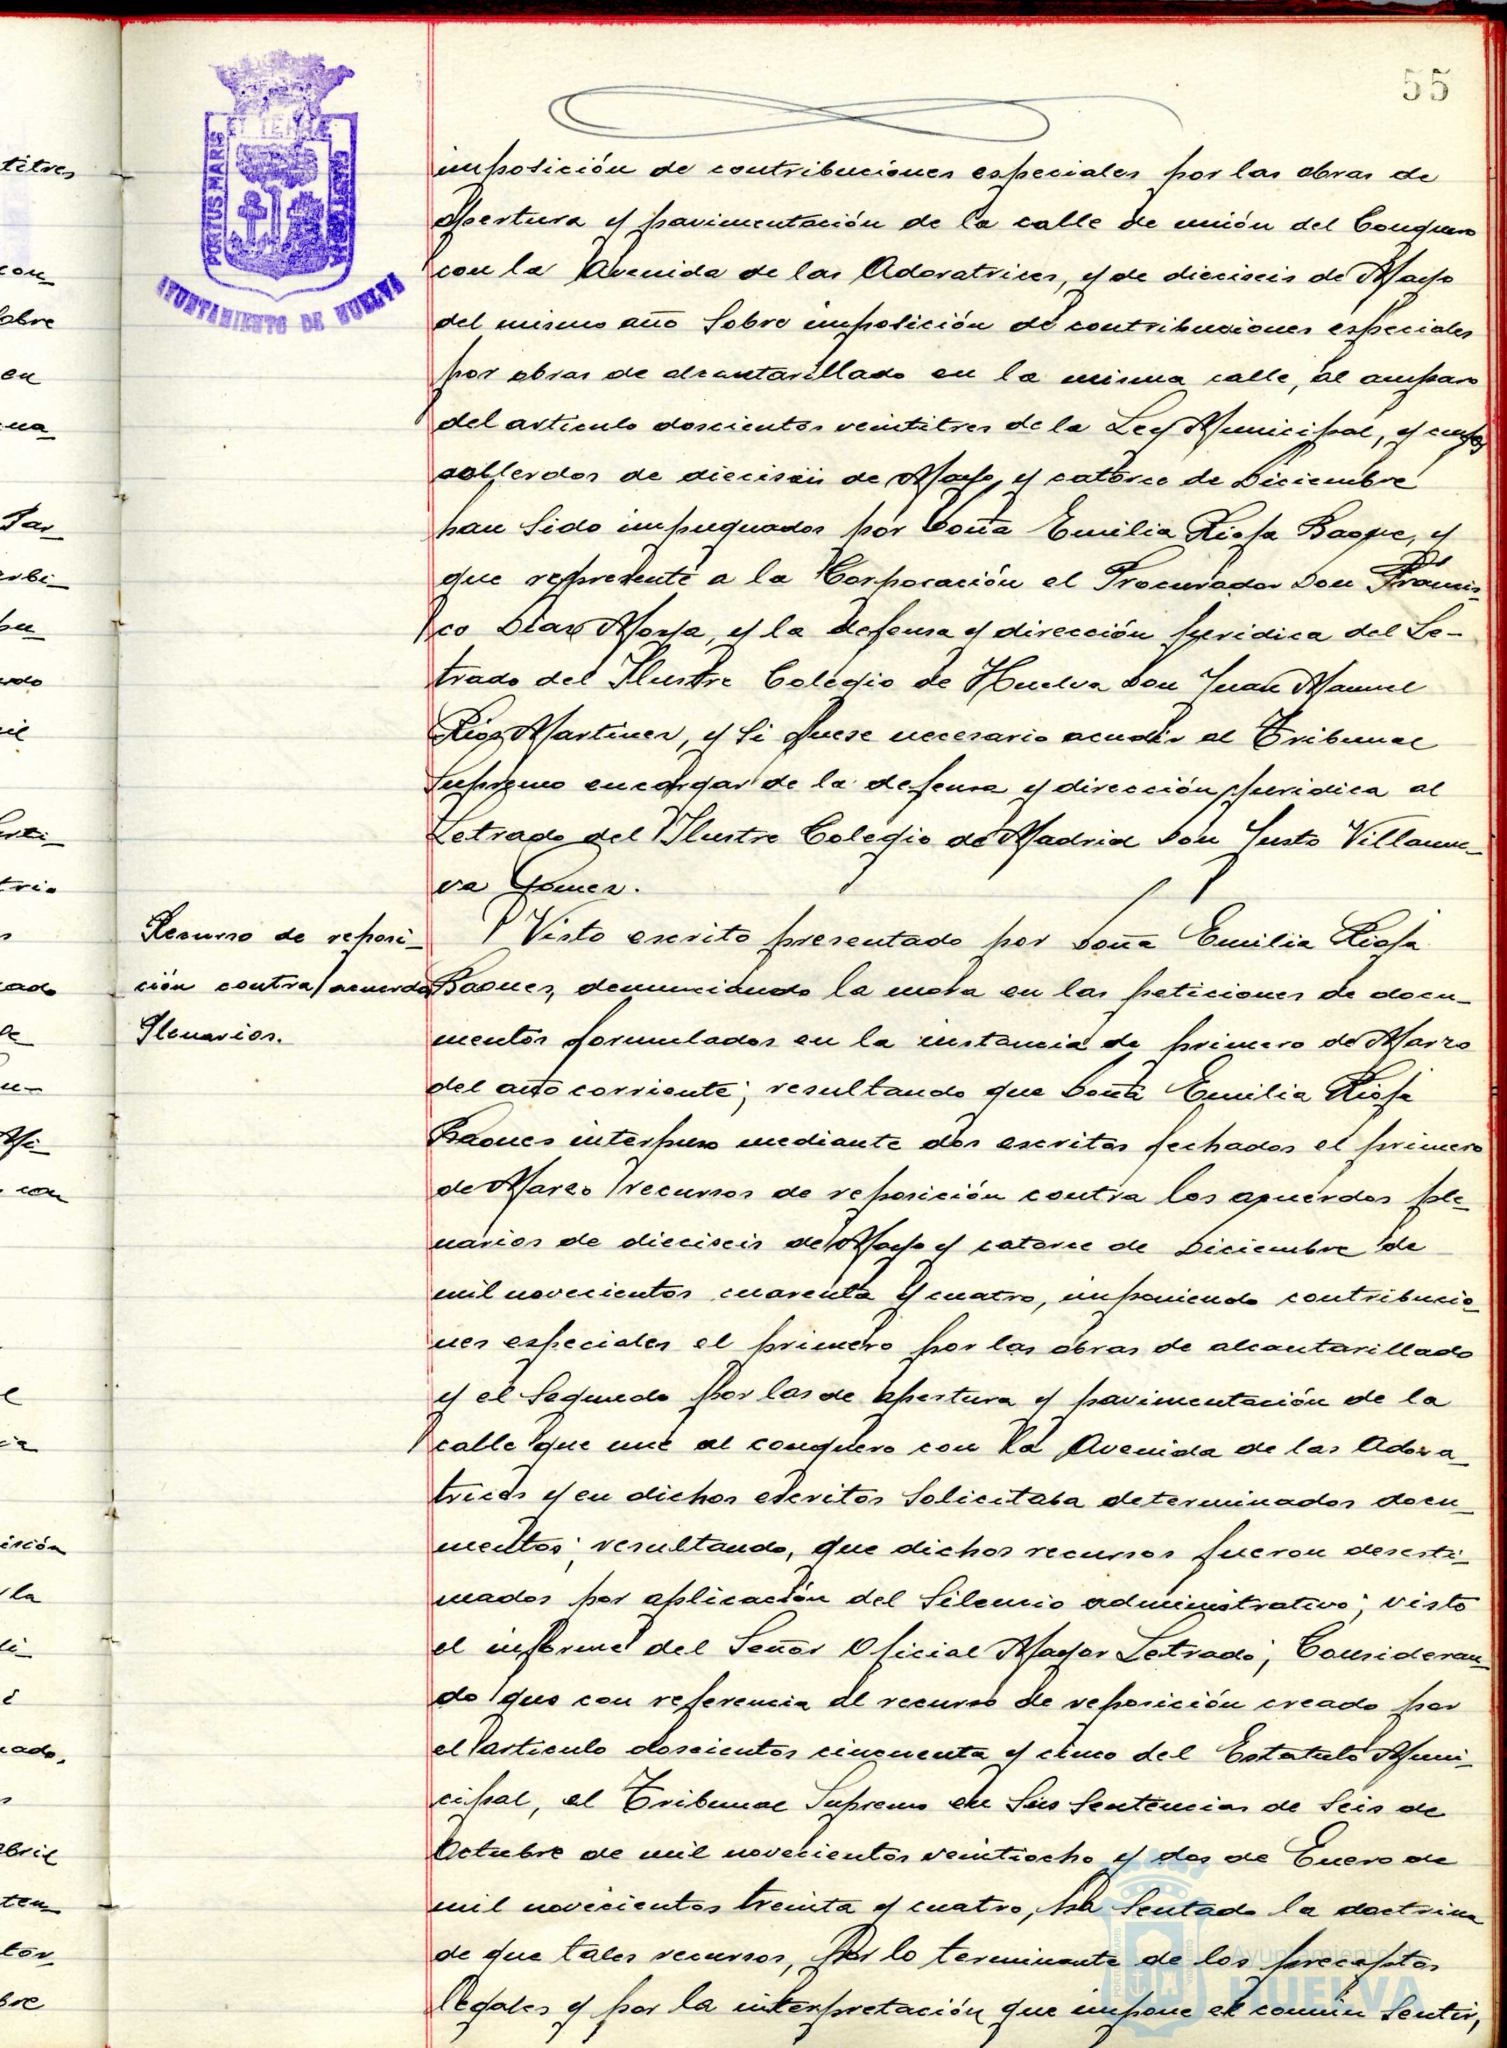 55
PORTUS MARIS
AYUNTAMIENTO DE HUELVA
imposición de contribuciones especiales por las obras de
apertura y pavimentación de la calle de unión del Conquero
con la Avenida de las Adoratrices, y de dieciseis de Mayo
del mismo año sobre imposición de contribuciones especiales
por obras de alcantarillado en la misma calle, al amparo
del articulo doscientos veintitres de la Ley Municipal, y cuyos
acuerdos de dieciseis de Mayo y catorce de Diciembre
han sido impugnados por Doña Emilia Rioja Baque, y
que represente a la Corporación el Procurador Don Francis-
co Diaz Moya, y la defensa y dirección juridica del Le-
trado del Ilustre Colegio de Huelva Don Juan Manuel
Rioz Martinez, y si fuese necesario acudir al Tribunal
Supremo encargar de la defensa y dirección juridica al
Letrado del Ilustre Colegio de Madrid Don Justo Villanue-
va Gomez.
Recurso de reposi-
ción contra acuerdo
Plenarios.
Visto escrito presentado por Doña Emilia Rioja
Baones, denunciando la mora en las peticiones de docu-
mentos formulados en la instancia de primero de Marzo
del año corriente; resultando que Doña Emilia Rioja
Baones interpuso mediante dos escritos fechados el primero
de Marzo recursos de reposición contra los acuerdos ple-
narios de dieciseis de Mayo y catorce de Diciembre de
mil novecientos cuarenta y cuatro, imponiendo contribucio-
nes especiales el primero por las obras de alcantarillado
y el segundo por las de apertura y pavimentación de la
calle que une al conquero con la Avenida de las Adora-
trices y en dichos escritos solicitaba determinados docu-
mentos; resultando, que dichos recursos fueron desesti-
mados por aplicación del silencio administrativo; visto
el informe del Señor Oficial Mayor Letrado; Consideran-
do que con referencia al recurso de reposición creado por
el articulo doscientos cincuenta y cinco del Estatuto Muni-
cipal, el Tribunal Supremo en sus sentencias de seis de
Octubre de mil novecientos veintiocho y dos de Enero de
mil novecientos treinta y cuatro, ha sentado la doctrina
de que tales recursos, por lo terminante de los preceptos
legales y por la interpretación que impone el común sentir,
Ayuntamiento de
HUELVA